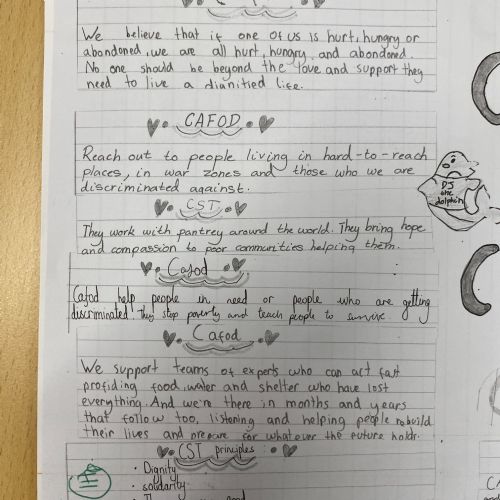 We believe that if one of us is hurt, hungry or
abondoned, we are all hurt, hungry, and abondoned.
No one should be beyond the love and support they
need to live a dignitied life.
CAFOD
Reach out to people living in hard-to-reach
places, in war zones and those who we are
discriminated against.
CST
They work with pantrey around the world. They bring hope
and compassion to poor communities helping them.
Cafod
Cafod help people in need or people who are getting
discriminated. They stop poverty and teach people to survive.
Cafod
We support teams of experts who can act fast
profiding food, water and shelter who have lost
everything. And we're there in months and years
that follow too, listening and helping people rebuild
their lives and prepare for whatever the future holds.
CST principles:
• Dignity
• solidarity
DJ
the
dolphin